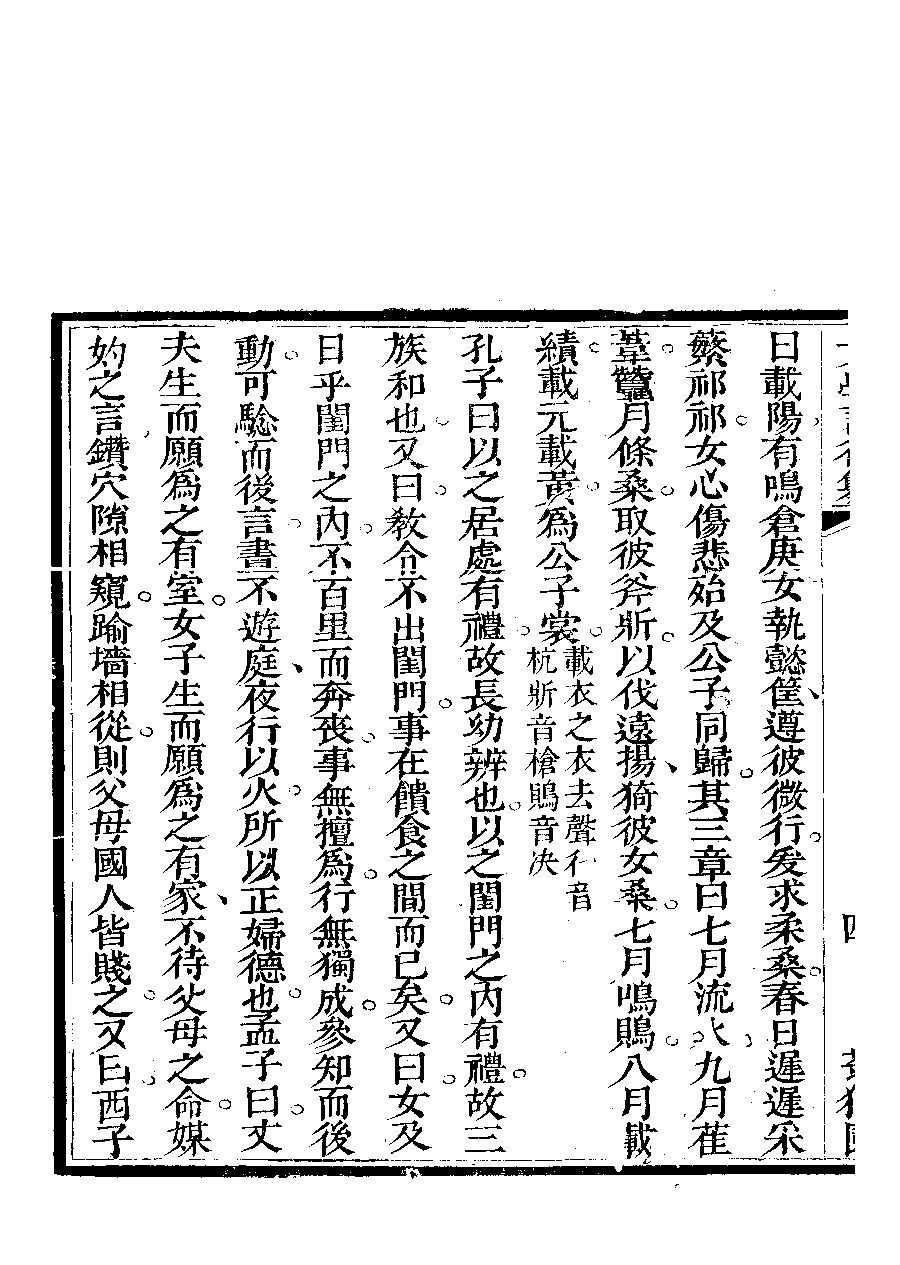 曰載陽有鳴倉庚女執懿筐遵彼微行爰求柔桑春日遲遲采
蘩祁祁女心傷悲殆及公子同歸其三章曰七月流火九月萑
葦蠶月條桑取彼斧斨以伐遠揚猗彼女桑七月鳴鵙八月載
績載元載黃為公子裳
載衣之衣去聲行音
杭斨音槍鵙音決
孔子曰以之居處有禮故長幼辨也以之閨門之內有禮故三
族和也又曰敎令不出閨門事在饋食之間而已矣又曰女及
日乎閨門之內不百里而奔喪事無擅為行無獨成參知而後
動可驗而後言晝不遊庭夜行以火所以正婦德也孟子曰丈
夫生而願為之有室女子生而願為之有家不待父母之命媒
妁之言鑽穴隙相窺踰墻相從則父母國人皆賤之又曰西子